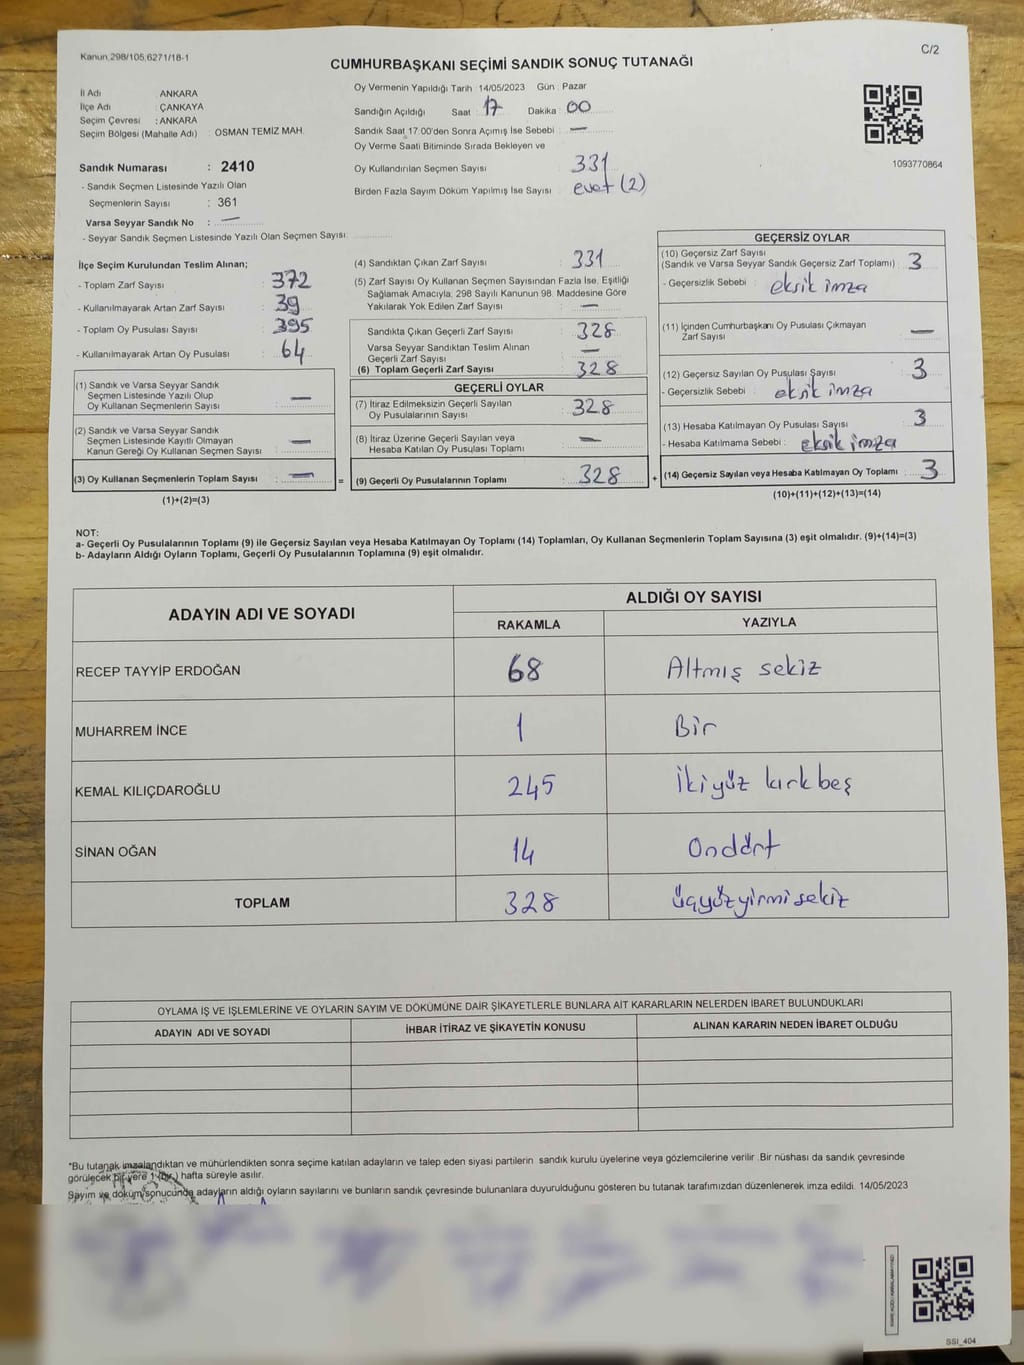 Kanun 298/105,6271/18-1
C/2
CUMHURBAŞKANI SEÇİMİ SANDIK SONUÇ TUTANAĞI
İl Adı : ANKARA
İlçe Adı : ÇANKAYA
Seçim Çevresi : ANKARA
Seçim Bölgesi (Mahalle Adı) : OSMAN TEMİZ MAH.
Sandık Numarası : 2410
- Sandık Seçmen Listesinde Yazılı Olan
Seçmenlerin Sayısı : 361
Varsa Seyyar Sandık No : —
- Seyyar Sandık Seçmen Listesinde Yazılı Olan Seçmen Sayısı:
Oy Vermenin Yapıldığı Tarih : 14/05/2023 Gün : Pazar
Sandığın Açıldığı Saat : 17 Dakika : 00
Sandık Saat 17:00'den Sonra Açımış İse Sebebi : —
Oy Verme Saati Bitiminde Sırada Bekleyen ve
Oy Kullandırılan Seçmen Sayısı : 331
Birden Fazla Sayım Döküm Yapılmış İse Sayısı : evet (2)
1093770864
İlçe Seçim Kurulundan Teslim Alınan;
- Toplam Zarf Sayısı : 372
- Kullanılmayarak Artan Zarf Sayısı : 39
- Toplam Oy Pusulası Sayısı : 395
- Kullanılmayarak Artan Oy Pusulası : 64
(1) Sandık ve Varsa Seyyar Sandık
Seçmen Listesinde Yazılı Olup
Oy Kullanan Seçmenlerin Sayısı : —
(2) Sandık ve Varsa Seyyar Sandık
Seçmen Listesinde Kayıtlı Olmayan
Kanun Gereği Oy Kullanan Seçmen Sayısı : —
(3) Oy Kullanan Seçmenlerin Toplam Sayısı : —
(1)+(2)=(3)
(4) Sandıktan Çıkan Zarf Sayısı : 331
(5) Zarf Sayısı Oy Kullanan Seçmen Sayısından Fazla İse, Eşitliği
Sağlamak Amacıyla, 298 Sayılı Kanunun 98. Maddesine Göre
Yakılarak Yok Edilen Zarf Sayısı : —
Sandıkta Çıkan Geçerli Zarf Sayısı : 328
Varsa Seyyar Sandıktan Teslim Alınan
Geçerli Zarf Sayısı : —
(6) Toplam Geçerli Zarf Sayısı : 328
GEÇERLİ OYLAR
(7) İtiraz Edilmeksizin Geçerli Sayılan
Oy Pusulalarının Sayısı : 328
(8) İtiraz Üzerine Geçerli Sayılan veya
Hesaba Katılan Oy Pusulası Toplamı : —
= (9) Geçerli Oy Pusulalarının Toplamı : 328 +
GEÇERSİZ OYLAR
(10) Geçersiz Zarf Sayısı
(Sandık ve Varsa Seyyar Sandık Geçersiz Zarf Toplamı) : 3
- Geçersizlik Sebebi : eksik imza
(11) İçinden Cumhurbaşkanı Oy Pusulası Çıkmayan
Zarf Sayısı : —
(12) Geçersiz Sayılan Oy Pusulası Sayısı : 3
- Geçersizlik Sebebi : eksik imza
(13) Hesaba Katılmayan Oy Pusulası Sayısı : 3
- Hesaba Katılmama Sebebi : eksik imza
(14) Geçersiz Sayılan veya Hesaba Katılmayan Oy Toplamı : 3
(10)+(11)+(12)+(13)=(14)
NOT:
a- Geçerli Oy Pusulalarının Toplamı (9) ile Geçersiz Sayılan veya Hesaba Katılmayan Oy Toplamı (14) Toplamları, Oy Kullanan Seçmenlerin Toplam Sayısına (3) eşit olmalıdır. (9)+(14)=(3)
b- Adayların Aldığı Oyların Toplamı, Geçerli Oy Pusulalarının Toplamına (9) eşit olmalıdır.
ADAYIN ADI VE SOYADI ALDIĞI OY SAYISI
RAKAMLA YAZIYLA
RECEP TAYYİP ERDOĞAN 68 Altmış sekiz
MUHARREM İNCE 1 Bir
KEMAL KILIÇDAROĞLU 245 İkiyüz kırkbeş
SİNAN OĞAN 14 Ondört
TOPLAM 328 üçyüzyirmisekiz
OYLAMA İŞ VE İŞLEMLERİNE VE OYLARIN SAYIM VE DÖKÜMÜNE DAİR ŞİKAYETLERLE BUNLARA AİT KARARLARIN NELERDEN İBARET BULUNDUKLARI
ADAYIN ADI VE SOYADI İHBAR İTİRAZ VE ŞİKAYETİN KONUSU ALINAN KARARIN NEDEN İBARET OLDUĞU
*Bu tutanak imzalandıktan ve mühürlendikten sonra seçime katılan adayların ve talep eden siyasi partilerin sandık kurulu üyelerine veya gözlemcilerine verilir. Bir nüshası da sandık çevresinde
görülecek bir yere 1 (bir) hafta süreyle asılır.
Sayım ve döküm sonucunda adayların aldığı oyların sayılarını ve bunların sandık çevresinde bulunanlara duyurulduğunu gösteren bu tutanak tarafımızdan düzenlenerek imza edildi. 14/05/2023
SSI_404